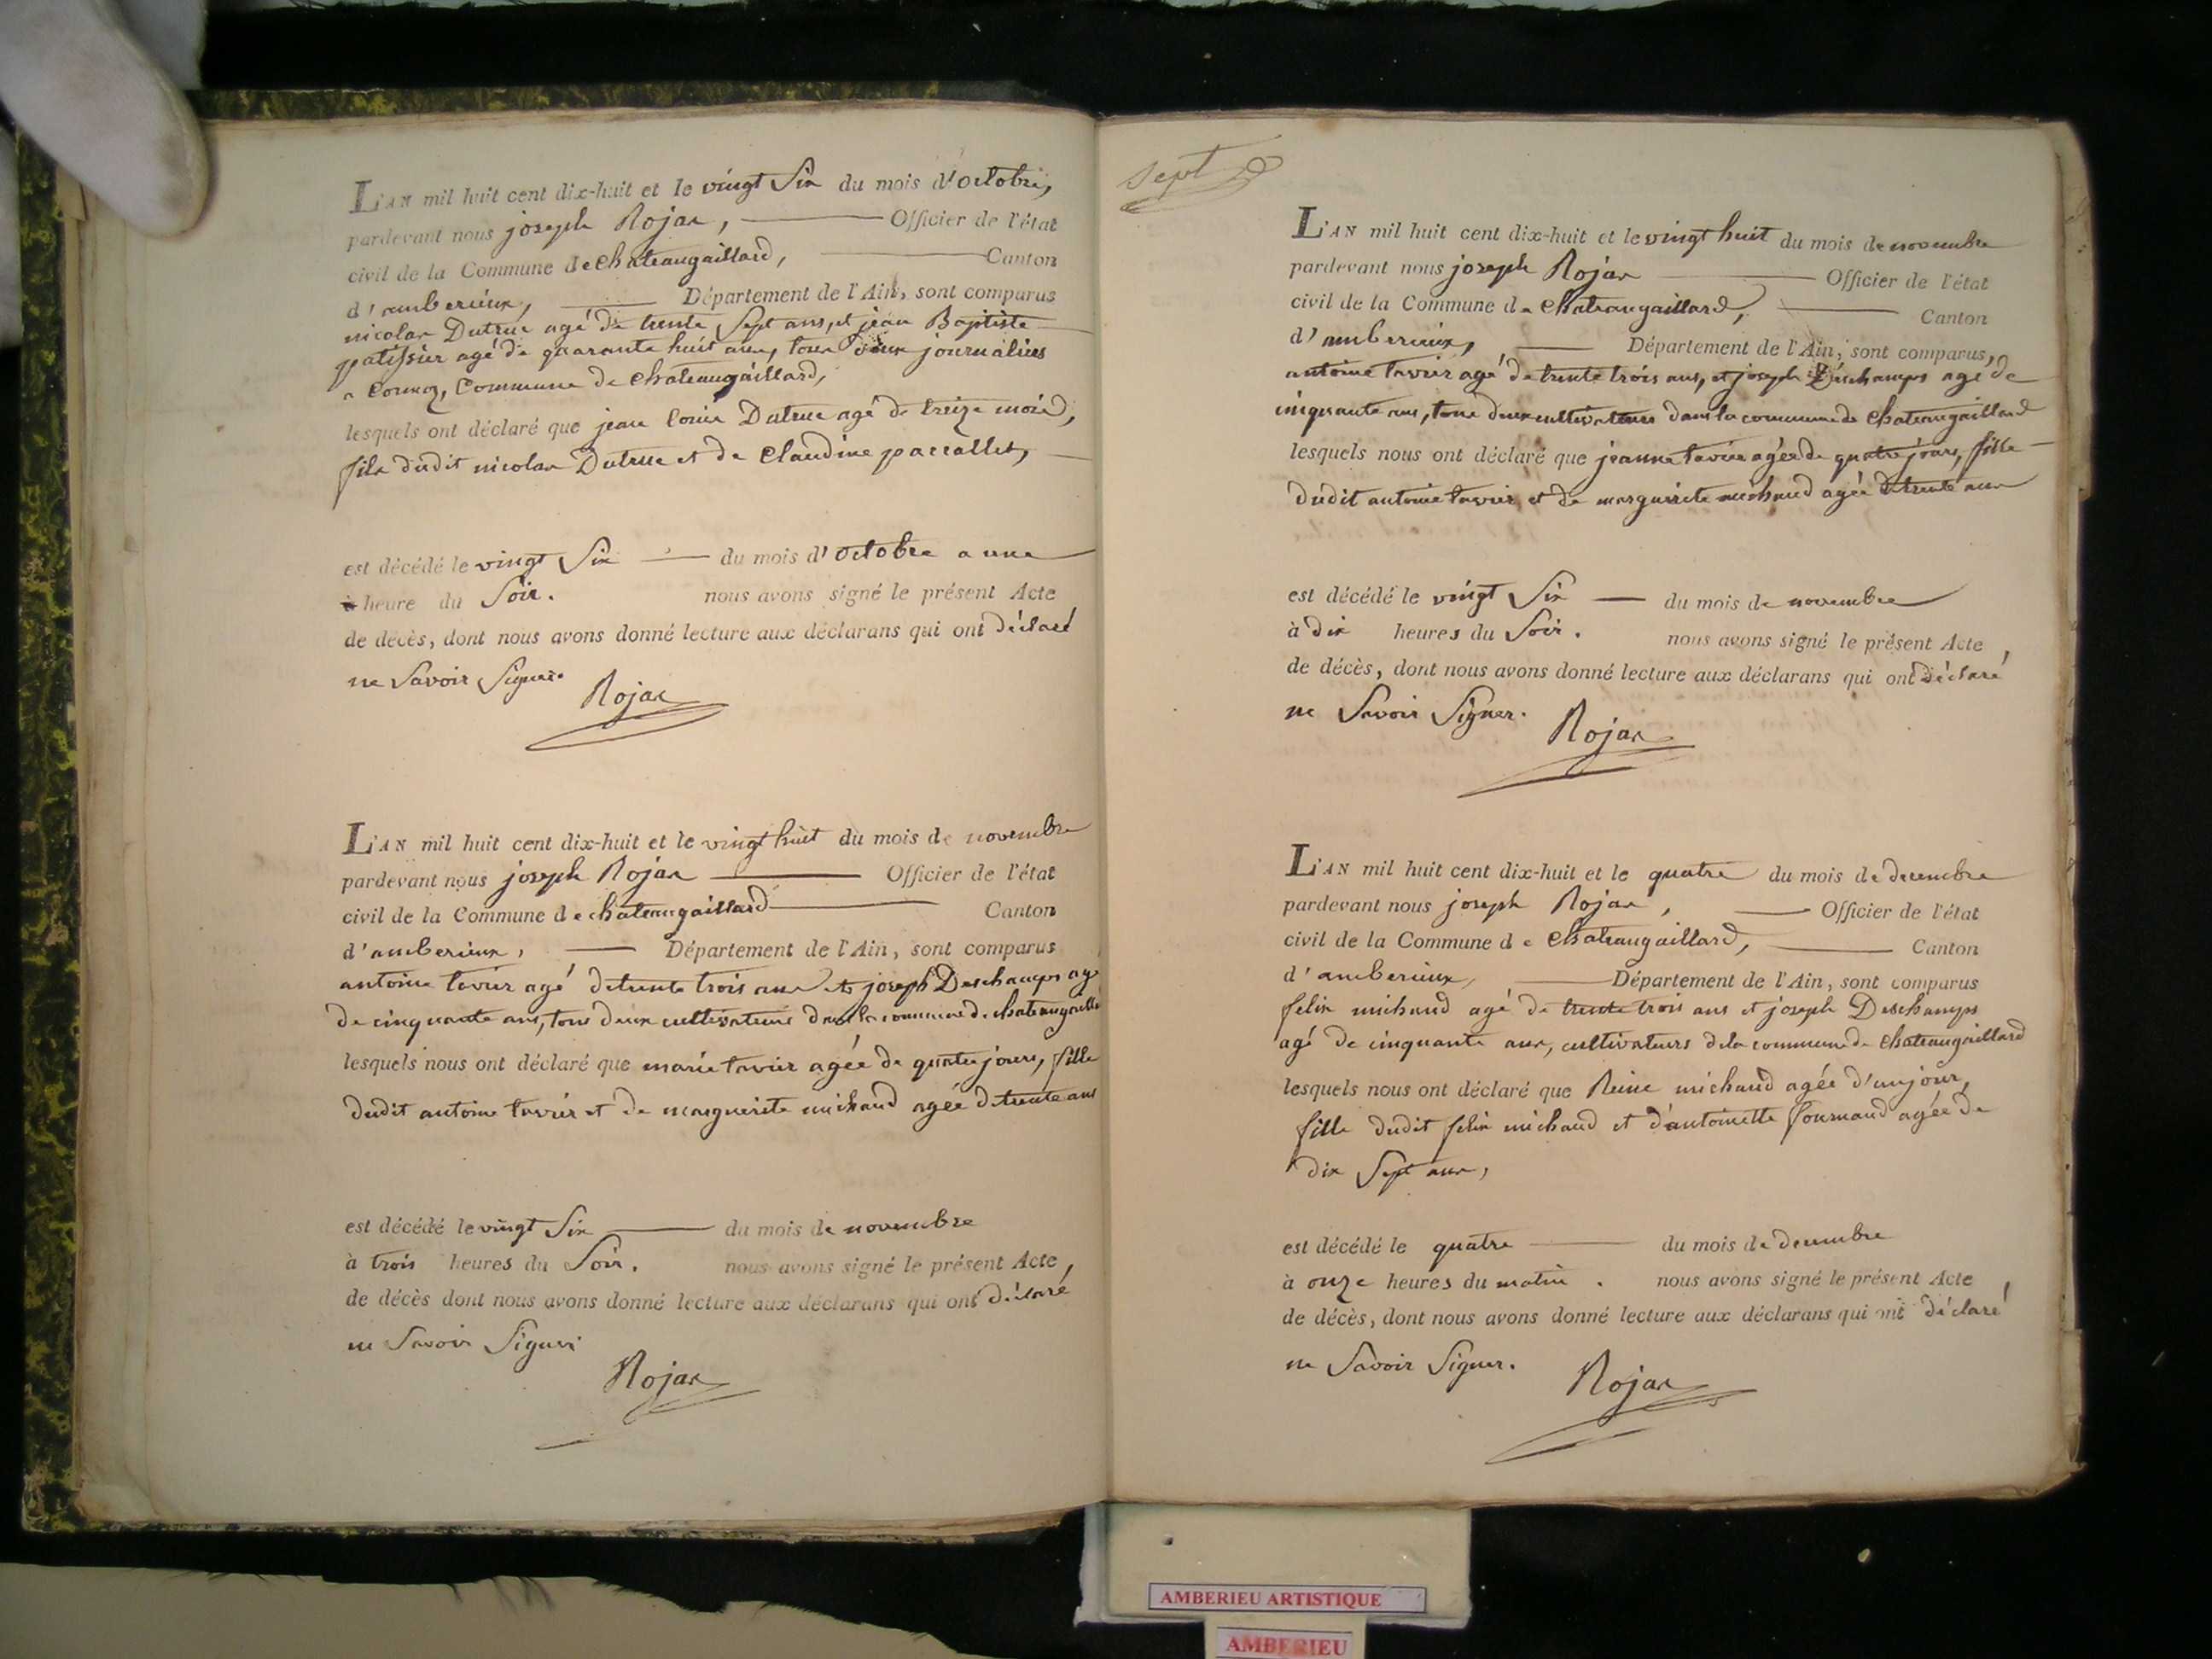 L'AN mil huit cent dix-huit et le vingt Six du mois d'octobre,
pardevant nous joseph Rojax, Officier de l'état
civil de la Commune de chateaugaillard, Canton
d'amberieux, Département de l'Ain, sont comparus
nicolas Dutruc agé de trente Sept ans, et jean Baptiste
patissier agé de quarante huit ans, tous deux journaliers
a Cormoz, Commune de chateaugaillard,
lesquels ont déclaré que jean louis Dutruc agé de treize mois,
fils dudit nicolas Dutruc et de Claudine
est décédé le vingt Six du mois d'octobre a une
à heure du Soir. nous avons signé le présent Acte
de décès, dont nous avons donné lecture aux déclarans qui ont déclaré
ne Savoir Signer.
Rojax
L'AN mil huit cent dix-huit et le vingt huit du mois de novembre
pardevant nous joseph Rojax Officier de l'état
civil de la Commune de chateaugaillard Canton
d'amberieux, Département de l'Ain, sont comparus
antoine tavier agé de trente trois ans et joseph Deschamps agé
de cinquante ans, tous deux cultivateurs dans la commune de chateaugaillard
lesquels nous ont déclaré que marie tavier agée de quatre jours, fille
dudit antoine tavier et de marguerite michaud agée de trente ans
est décédé le vingt Six du mois de novembre
à trois heures du Soir. nous avons signé le présent Acte,
de décès dont nous avons donné lecture aux déclarans qui ont déclaré
ne Savoir Signer
Rojax
sept
L'AN mil huit cent dix-huit et le vingt huit du mois de novembre
pardevant nous joseph Rojax Officier de l'état
civil de la Commune de chateaugaillard, Canton
d'amberieux, Département de l'Ain, sont comparus,
antoine tavier agé de trente trois ans, et joseph Deschamps agé de
cinquante ans, tous deux cultivateurs dans la commune de chateaugaillard
lesquels nous ont déclaré que jeanne tavier agée de quatre jours, fille
dudit antoine tavier, et de marguerite michaud agée de trente ans
est décédé le vingt Six du mois de novembre
à dix heures du Soir. nous avons signé le présent Acte,
de décès, dont nous avons donné lecture aux déclarans qui ont déclaré
ne Savoir Signer.
Rojax
L'AN mil huit cent dix-huit et le quatre du mois de decembre
pardevant nous joseph Rojax, Officier de l'état
civil de la Commune de chateaugaillard, Canton
d'amberieux, Département de l'Ain, sont comparus
felix michaud agé de trente trois ans et joseph Deschamps
agé de cinquante ans, cultivateurs de la commune de chateaugaillard
lesquels nous ont déclaré que Reine michaud agée d'un jour,
fille dudit felix michaud et d'antoinette fournaud agée de
dix Sept ans,
est décédé le quatre du mois de decembre
à onze heures du matin. nous avons signé le présent Acte,
de décès, dont nous avons donné lecture aux déclarans qui ont déclaré
ne Savoir Signer.
Rojax
AMBERIEU ARTISTIQUE
AMBERIEU